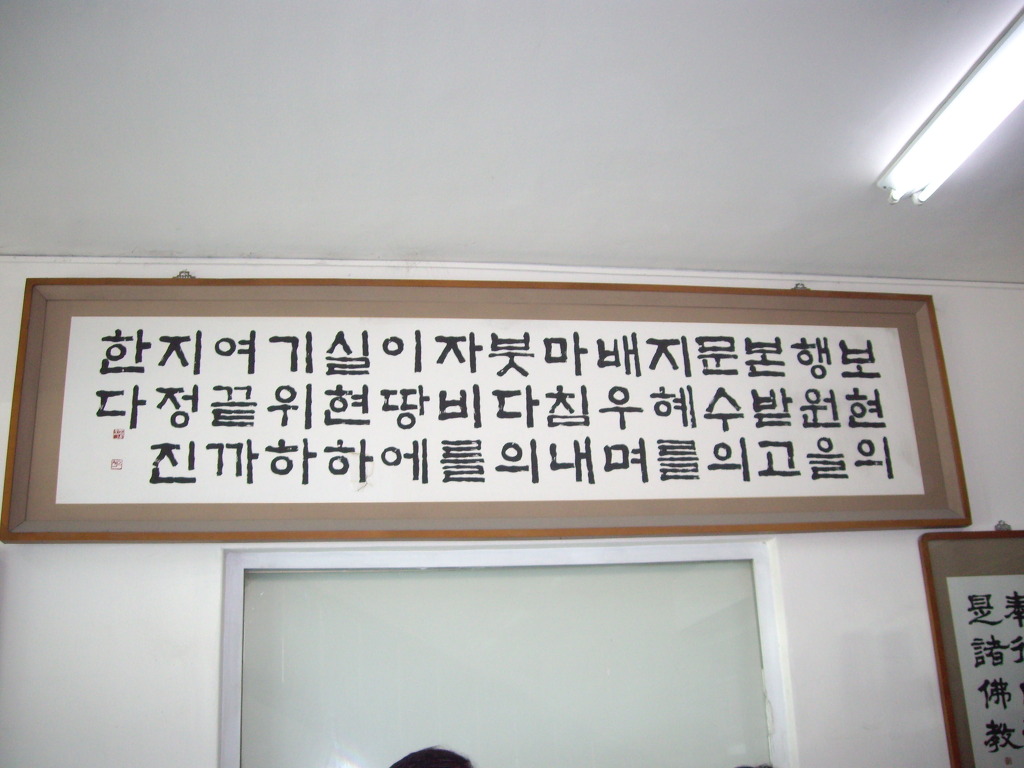 보현의
행원을
본받고
문수의
지혜를
배우며
마침내
붓다의
자비를
이땅에
실현하
기위하
여끝까
지정진
한다
奉行
是諸佛教